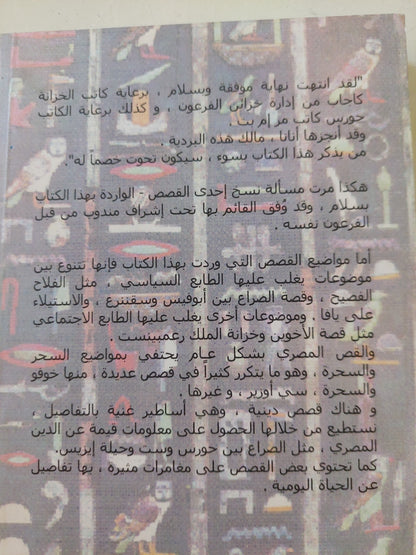 "لقد انتهت نهاية موفقة وبسلام ، برعاية كاتب الخزانة
كاجاب من إدارة خزائن الفرعون ، و كذلك برعاية الكاتب
حورس كاتب مر إم بت.
وقد أنجزها أنانا ، مالك هذه البردية .
من يذكر هذا الكتاب بسوء ، سيكون تحوت خصماً له".
هكذا مرت مسألة نسخ إحدى القصص - الواردة بهذا الكتاب
بسلام ، وقد وُفق القائم بها تحت إشراف مندوب من قبل
الفرعون نفسه .
أما مواضيع القصص التي وردت بهذا الكتاب فإنها تتنوع بين
موضوعات يغلب عليها الطابع السياسي ، مثل الفلاح
الفصيح ، وقصة الصراع بين أبوفيس وسقننرع ، والاستيلاء
على يافا . وموضوعات أخرى يغلب عليها الطابع الاجتماعي
مثل قصة الأخوين وخزانة الملك رعمبينست .
والقص المصري بشكل عام يحتفي بمواضيع السحر
والسحرة ، وهو ما يتكرر كثيراً في قصص عديدة ، منها خوفو
والسحرة ، سي أوزير ، و غيرها .
و هناك قصص دينية ، وهي أساطير غنية بالتفاصيل ،
نستطيع من خلالها الحصول على معلومات قيمة عن الدين
المصري ، مثل الصراع بين حورس وست وحيلة إيزيس.
كما تحتوي بعض القصص على مغامرات مثيرة ، بها تفاصيل
عن الحياة اليومية .